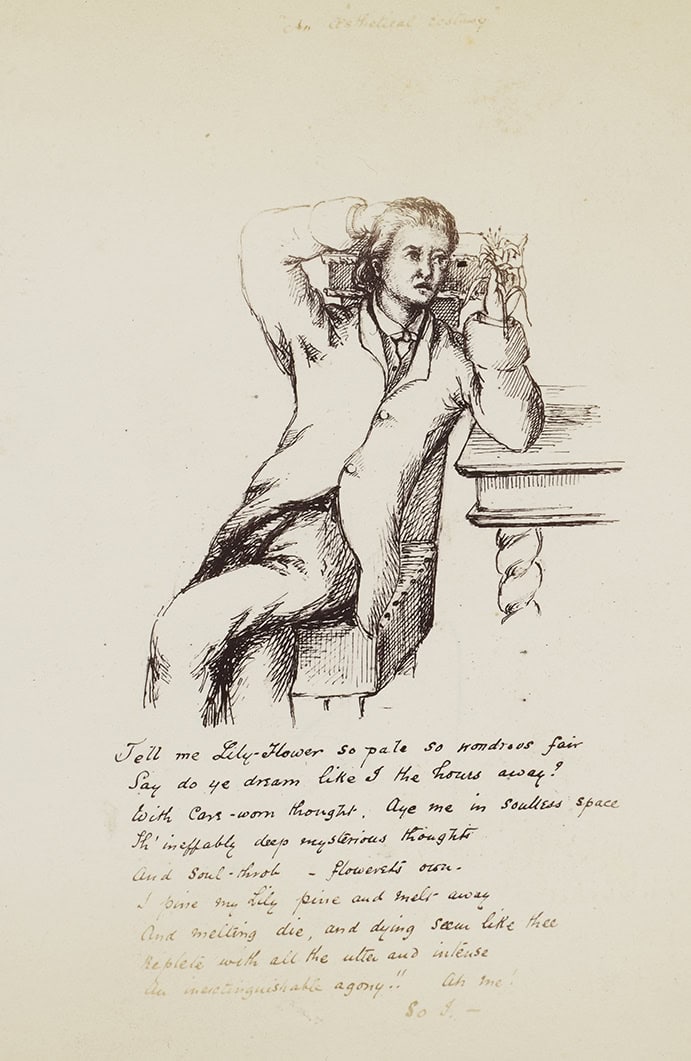 "An Æsthetical Ecstasy"
Tell me Lily-Flower so pale so wondrous fair
Say do ye dream like I the hours away?
With Care-worn thought. Aye me in soulless space
Th' ineffably deep mysterious thoughts
And soul-throb - flowerets own.
I pine my Lily pine and melt away
And melting die, and dying seem like thee
Replete with all the utter and intense
An inextinguishable agony!! Ah me!
So I. —